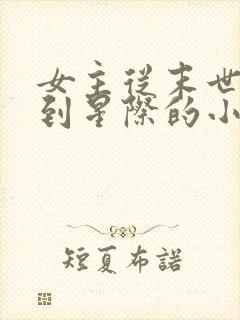 女主從末世
到星際的小
短夏布諾